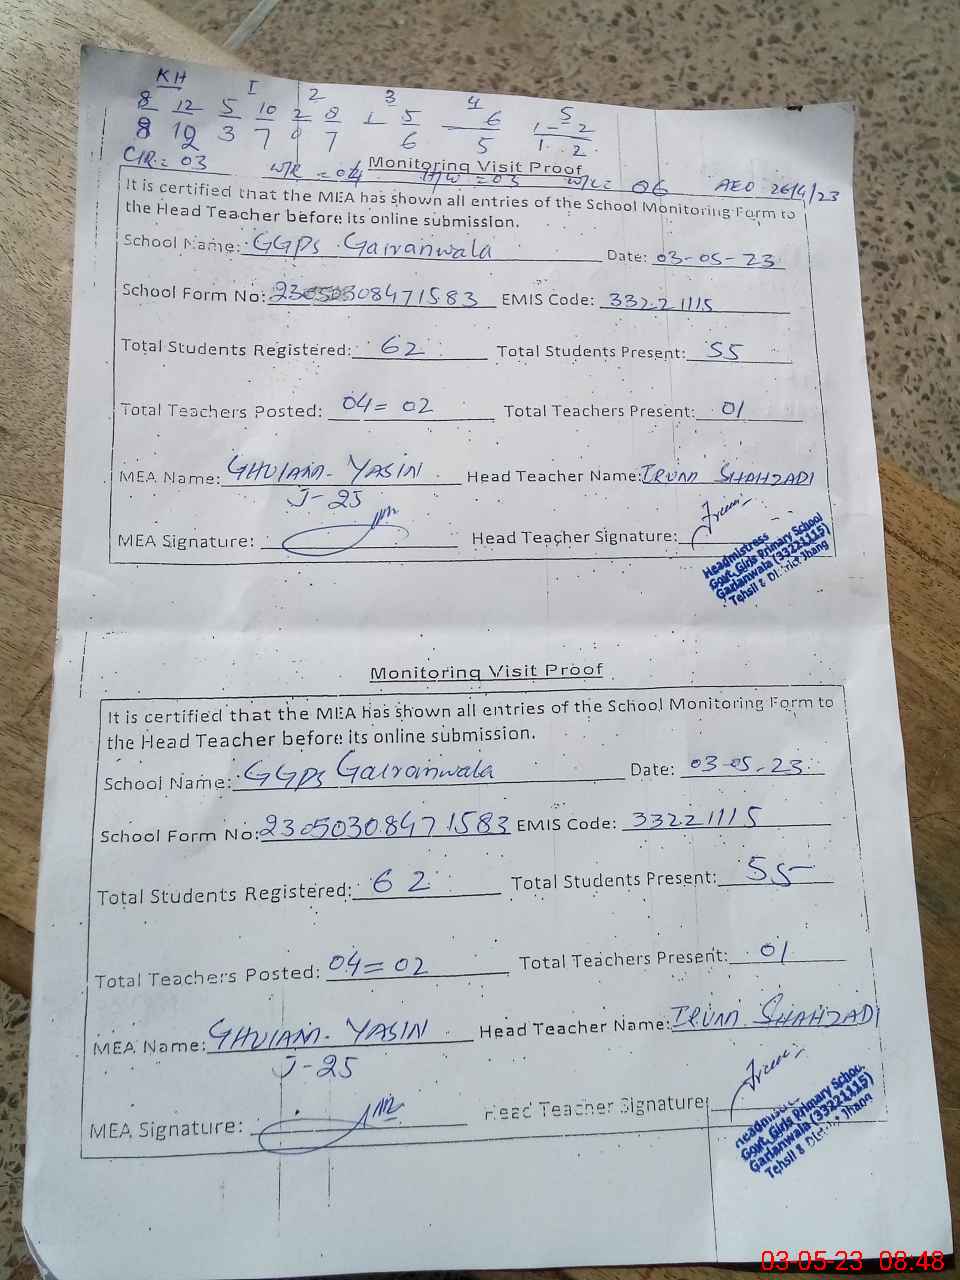 KH 1 2 3 4 5
8 12 5 10 2 8 1 5 6 1 - 2
8 10 3 7 7 6 5 1 2
CIR = 03 W/R = 04 H/W = 03 W/L = 06 AEO 26/4/23
Monitoring Visit Proof
It is certified that the MEA has shown all entries of the School Monitoring Form to
the Head Teacher before its online submission.
School Name: GGPS Gairanwala Date: 03-05-23
School Form No: 23050308471583 EMIS Code: 33221115
Total Students Registered: 62 Total Students Present: 55
Total Teachers Posted: 04=02 Total Teachers Present: 01
MEA Name: GHULAM YASIN Head Teacher Name: IRUM SHAHZADI
J-25
MEA Signature: Head Teacher Signature:
Headmistress
Govt. Girls Primary School
Garianwala (33221115)
Tehsil & District Jhang
Monitoring Visit Proof
It is certified that the MEA has shown all entries of the School Monitoring Form to
the Head Teacher before its online submission.
School Name: GGPS Gairanwala Date: 03-05-23
School Form No: 23050308471583 EMIS Code: 33221115
Total Students Registered: 62 Total Students Present: 55
Total Teachers Posted: 04=02 Total Teachers Present: 01
MEA Name: GHULAM YASIN Head Teacher Name: IRUM SHAHZADI
J-25
MEA Signature: Head Teacher Signature:
Headmistress
Govt. Girls Primary School
Garianwala (33221115)
Tehsil & District Jhang
03-05-23 08:48